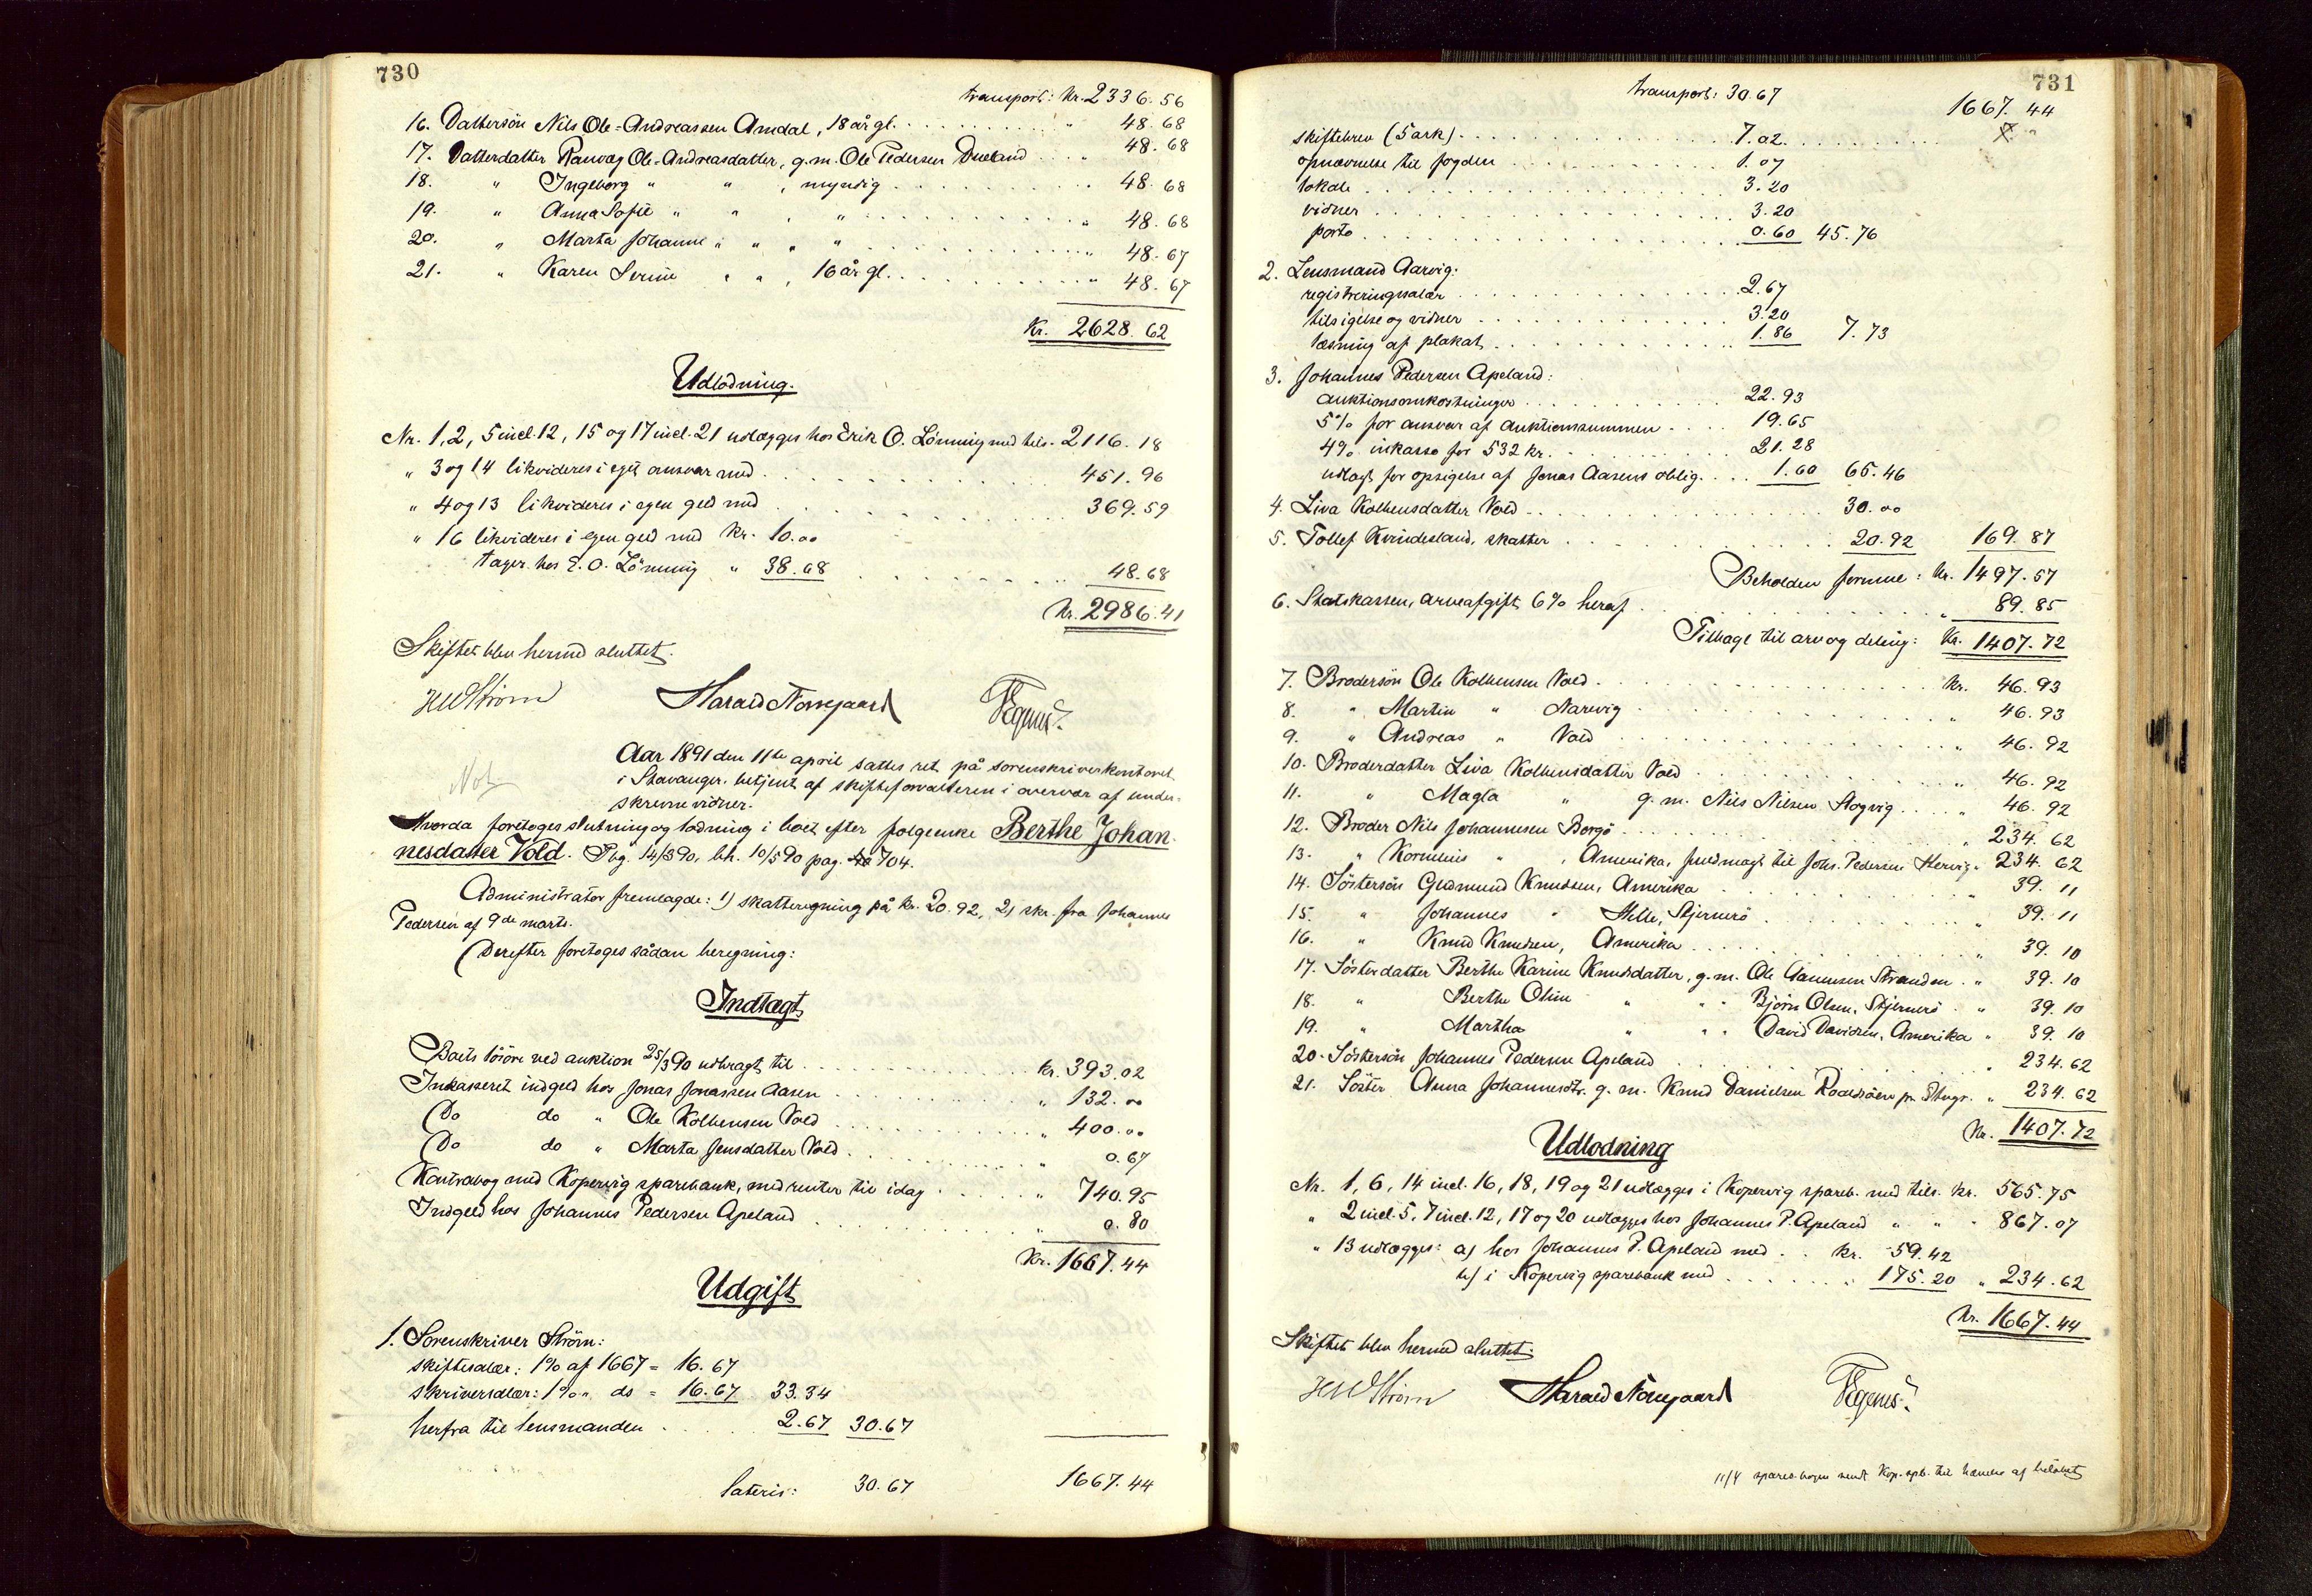 730
transport: Kr. 2336.56
16. Dattersön Nils Ole-Andreassen Amdal, 18 år gl. . . . " 48.68
17. Datterdatter Ranvag Ole-Andreasdatter, g.m. Ole Pedersen Dueland . . . " 48.68
18. " Ingeborg " " , myndig . . . " 48.68
19. " Anna Sofie " " , " . . . " 48.68
20. " Marta Johanne " " , " . . . " 48.67
21. " Karen Serine " " , 16 år gl. . . . " 48.67
Kr. 2628.62
Udlodning.
Nr. 1, 2, 5 incl. 12, 15 og 17 incl. 21 udlægges hos Erik O. Lönning med tils. 2116.18
" 3 og 14 likvideres i eget ansvar med . . . 451.96
" 4 og 13 likvideres i egen geld med . . . 369.59
" 16 likvideres i egen geld med Kr. 10.00
tager hos E. O. Lönning " 38.68 . . . 48.68
Kr. 2986.41
Skiftet blev hermed sluttet.
HWStröm Harald Norregaard
Aar 1891 den 11te april sattes ret på sorenskriverkontoret
i Stavanger, betjent af skifteforvalteren i overvær af under-
skrevne vidner.
Not
Hvorda foretoges slutning og lodning i boet efter fölgepike Berthe Johan-
nesdatter Vold. Rbg. 14/3 90, bh. 10/5 90 pag. 704.
Administrator fremlagde: 1) skatteregning på kr. 20.92, 2) skr. fra Johannes
Pedersen af 9de marts.
Derefter foretoges sådan beregning:
Indtægt
Boets lösöre ved auktion 25/3 90 udbragt til . . . Kr. 393.02
Inkasseret indgeld hos Jonas Jonassen Aasen . . . " 132.00
Do do " Ole Kolbensen Vold . . . " 400.00
Do do " Marta Jensdatter Vold . . . " 0.67
Kontrabog med Kopervig sparebank, med renter til idag . . . " 740.95
Indgeld hos Johannes Pedersen Apeland . . . " 0.80
Kr. 1667.44
Udgift
1. Sorenskriver Ström:
skiftesalær: 1% af 1667 = 16.67
skriversalær: 1% " do = 16.67 33.34
herfra til lensmanden . . . 2.67 30.67
lateris: 30.67 1667.44
731
transport: 30.67 1667.44
skiftebrev (5 ark) . . . 7.02
opnævnelse til fogden . . . 1.07
lokale . . . 3.20
vidner . . . 3.20
porto . . . 0.60 45.76
2. Lensmand Aarvig:
registreringssalær . . . 2.67
tilsigelse og vidner . . . 3.20
læsning af plakat . . . 1.86 7.73
3. Johannes Pedersen Apeland:
auktionsomkostninger . . . 22.93
5% for ansvar af auktionsummen . . . 19.65
4% inkasso for 532 kr. . . . 21.28
udlagt for opsigelse af Jonas Aasens oblig. . . . 1.60 65.46
4. Liva Kolbensdatter Vold . . . 30.00
5. Tollef Kvindesland, skatter . . . 20.92 169.87
Beholden formue: Kr. 1497.57
6. Statskassen, arveafgift 6% heraf . . . " 89.85
Tilbage til arv og deling: Kr. 1407.72
7. Brodersön Ole Kolbensen Vold . . . Kr. 46.93
8. " Martin " Narwig . . . " 46.93
9. " Andreas " Vold . . . " 46.92
10. Broderdatter Liva Kolbensdatter Vold . . . " 46.92
11. " Magla " g.m. Nils Nilsen Stogvig . . . " 46.92
12. Broder Nils Johannesen Borgö . . . " 234.62
13. " Kornelius " , Amerika, fuldmagt til Johs. Pedersen Hervig " 234.62
14. Söstersön Gudmund Knudsen, Amerika . . . " 39.11
15. " Johannes " Helle, Stjernerö . . . " 39.11
16. " Knud Knudsen, Amerika . . . " 39.10
17. Sösterdatter Berthe Karine Knudsdatter, g.m. Ole Aanensen Stranden . " 39.10
18. " Berthe Oline " " " Bjørn Olsen, Stjernerö . " 39.10
19. " Martha " " " David Davidsen, Amerika " 39.10
20. Söstersön Johannes Pedersen Apeland . . . " 234.62
21. Söster Anna Johannesdtr. g.m. Knud Danielsen " 234.62
Kr. 1407.72
Udlodning
Nr. 1, 6, 14 incl. 16, 18, 19 og 21 udlægges i Kopervig spareb. med tils. Kr. 565.75
" 2 incl. 5, 7 incl. 12, 17 og 20 udlægges hos Johannes P. Apeland " " " 867.07
" 13 udlægges: a) hos Johannes P. Apeland med . . Kr. 59.42
b) i Kopervig sparebank med . . . 175.20 " 234.62
Kr. 1667.44
Skiftet blev hermed sluttet.
HWStröm Harald Norregaard
11/4 spareb.bogen sendt Kop. spb. til hævelse af beløbet